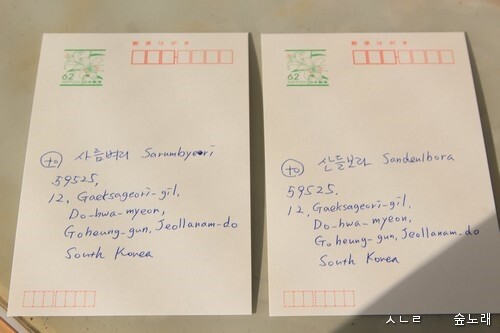 郵便はがき
62
to 사름벼리 Sarumbyeori
59525,
12, Gaeksageori-gil,
Do-hwa-myeon,
Goheung-gun, Jeollanam-do
South Korea
郵便はがき
62
to 산들보라 Sandeulbora
59525,
12, Gaeksageori-gil,
Do-hwa-myeon,
Goheung-gun, Jeollanam-do
South Korea
ㅅㄴㄹ 숲노래